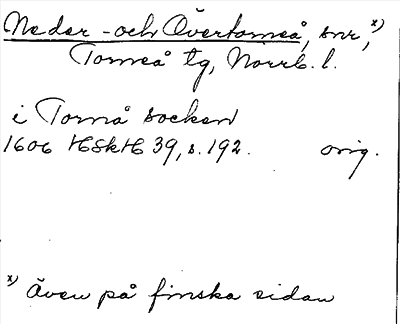 Neder- och Övertorneå, snr,ˣ⁾
Torneå tg, Norrb. l.
i Tornå socken
1606 HSkH 39, s. 192. orig.
ˣ⁾ Även på finska sidan